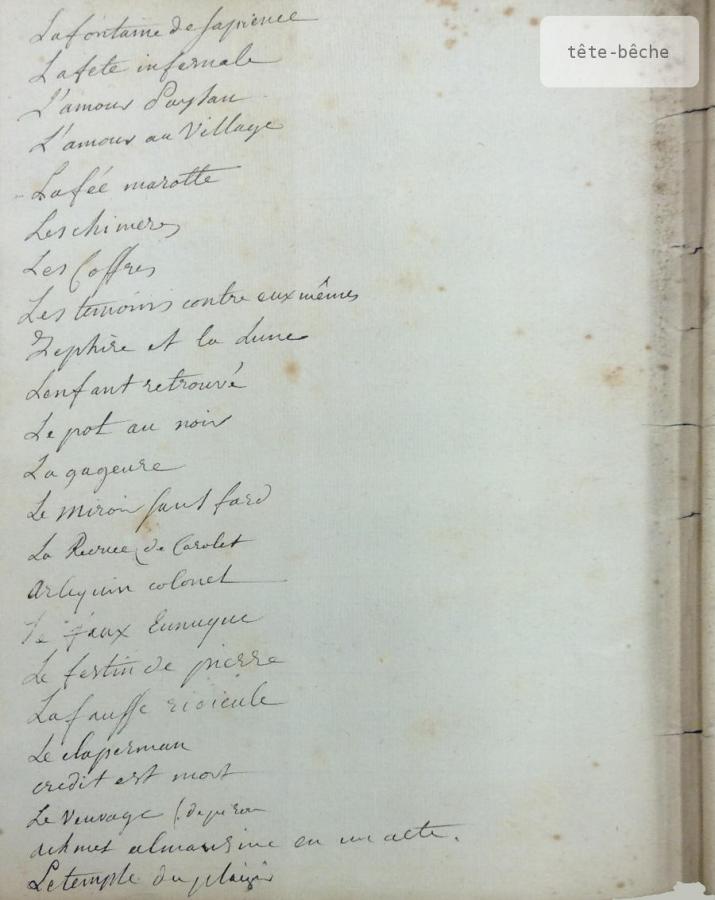 tête-bêche
Lafontaine de sapience
Lafete infernale
L'amour Paysan
L'amour au Village
Lafée marotte
Les chimeres
Les Coffres
Les temoins contre eux mêmes
Zephire et la Lune
Lenfant retrouvé
Le pot au noir
La gageure
Le miroir sans fard
La Revue (de Carolet
arlequin colonel
le faux Eunuque
Le festin de pierre
Lafausse ridicule
Le claperman
credit est mort
Le Veuvage (de piron
achmet almansine en un acte.
Letemple du plaisir